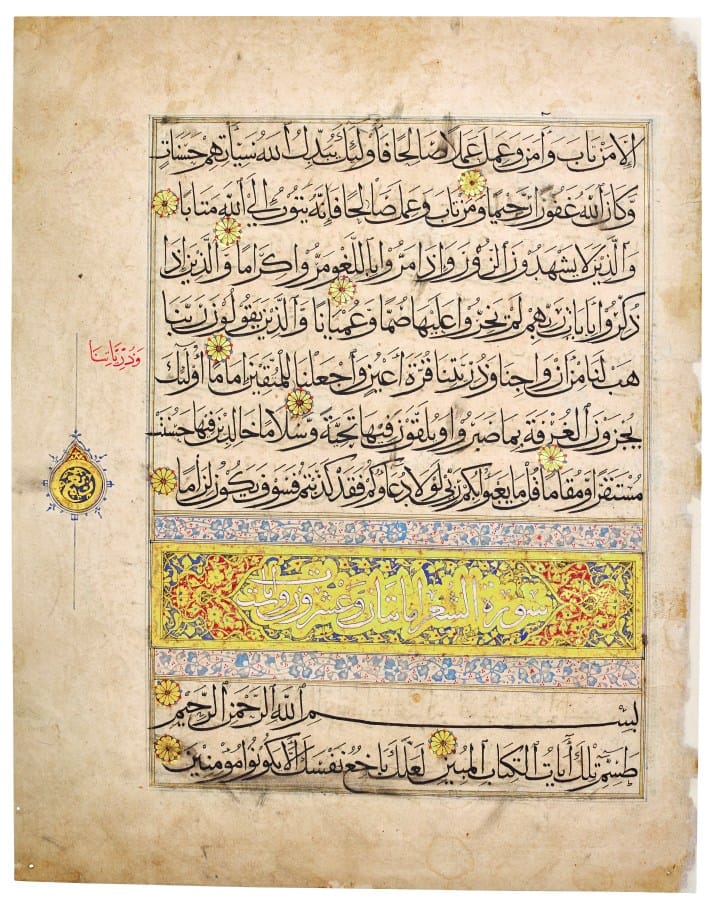 إلا من تاب وآمن وعمل عملا صالحا فأولئك يبدل الله سيئاتهم حسنات
وكان الله غفورا رحيما ومن تاب وعمل صالحا فإنه يتوب إلى الله متابا
والذين لا يشهدون الزور وإذا مروا باللغو مروا كراما والذين إذا
ذكروا بآيات ربهم لم يخروا عليها صما وعميانا والذين يقولون ربنا
وذرياتنا
هب لنا من أزواجنا وذريتنا قرة أعين واجعلنا للمتقين إماما أولئك
يجزون الغرفة بما صبروا ويلقون فيها تحية وسلاما خالدين فيها حسنت
مستقرا ومقاما قل ما يعبؤا بكم ربي لولا دعاؤكم فقد كذبتم فسوف يكون لزاما
سورة الشعرا مائتان وعشرون
بسم الله الرحمن الرحيم
طسم تلك آيات الكتاب المبين لعلك باخع نفسك ألا يكونوا مومنين